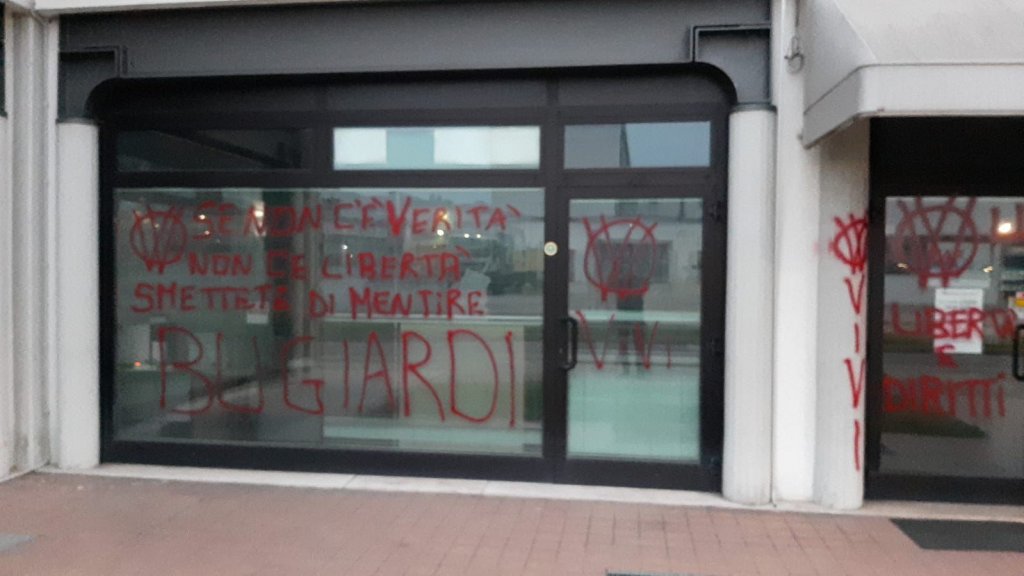 SE NON C'È VERITÀ
NON CE LIBERTÀ
SMETTETE DI MENTIRE
BUGIARDI
VIVI
VIVI
LIBERTÀ
E
DIRITTI